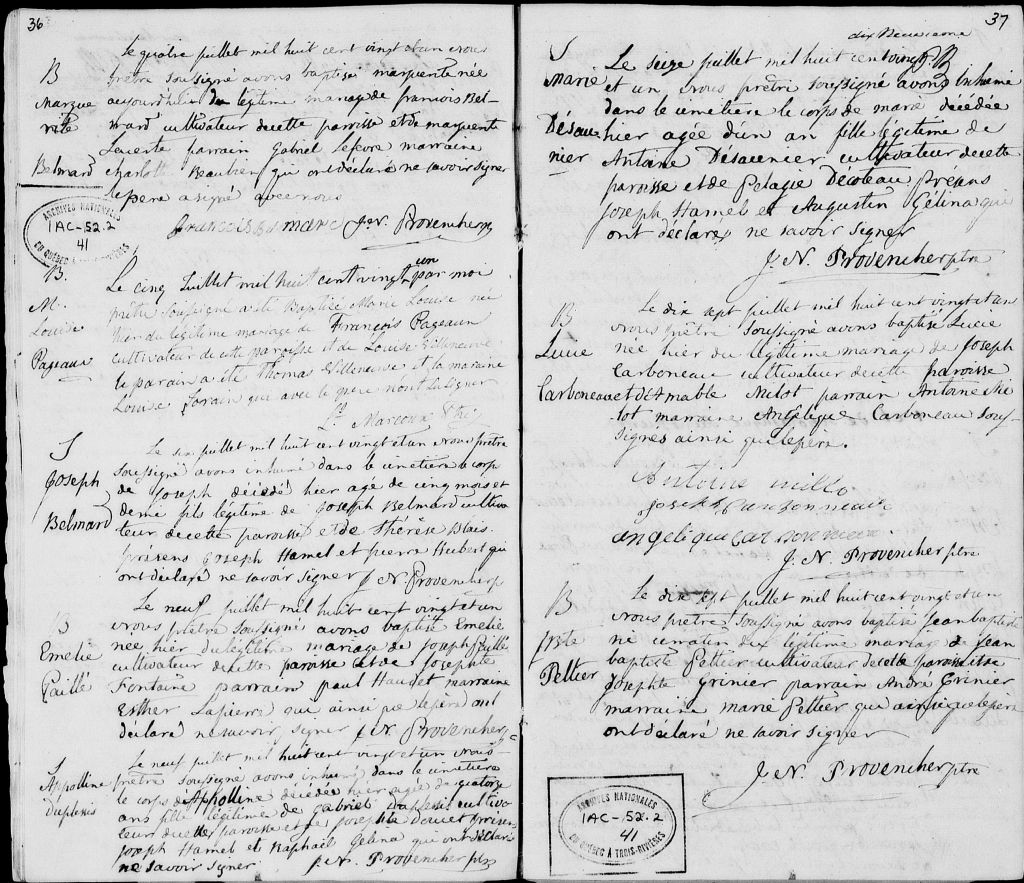 36
Le quatre juillet mil huit cent vingt et un nous
prêtre soussigné avons baptisé marguerite née
aujourd'hui du légitime mariage de francois Bel-
mard cultivateur de cette paroisse et de marguerite
parrain Gabriel Lefevre marraine
charlotte Beaubien qui ont déclaré ne savoir signer
le pere a signé avec nous
J. N. Provencher ptre
B
Margue
rite
Belmard
ARCHIVES NATIONALES
1AC-52.2
41
DU QUÉBEC À TROIS-RIVIÈRES
B.
M.
Louise
Pageaux
Le cinq Juillet mil huit cent vingt un par moi
prêtre soussigné a été Baptisé Marie Louise née
hier du légitime mariage de François Pageaux
cultivateur de cette paroisse et de Louise Villeneuve.
le parain a été Thomas Villeneuve et la maraine
Louise qui avec le père n'ont su signer
Marcoux Ptre
S
Joseph
Belmard
Le six juillet mil huit cent vingt et un nous prêtre
soussigné avons inhumé dans le cimetière le corp
de Joseph décédé hier age de cinq mois et
demi fils légitime de Joseph Belmard cultiva
teur de cette paroisse et de Thérèse Blais.
présens Joseph Hamel et pierre Hubert qui
ont déclaré ne savoir signer J. N. Provencher ptr
B
Emelie
Paillé
Le neuf juillet mil huit cent vingt et un
nous prêtre soussigné avons baptisé Emelie
née hier du légitime mariage de Joseph Paillé
cultivateur de cette paroisse et de Josephte
Fontaine parrain paul Haudet marraine
Esther Lapierre qui ainsi que le pere ont
déclaré ne savoir signer J. N. Provencher
S
Appolline
Duplessis
Le neuf juillet mil huit cent vingt et un Nous
prêtre soussigné avons inhumé dans le cimetière
le corps de Apholline décédée hier agée de quatorze
ans fille légitime de Gabriel Duplessis cultiva
teur de cette paroisse et de Josephte Doucet présen
Joseph Hamel et Raphael Gélina qui ont déclaré
ne savoir signer J. N. Provencher ptre
37
S
Marie
Désau
nier
Le seize juillet mil huit cent vingt
et un nous prêtre soussigné avons inhumé
dans le cimetière le corps de marie décédée
hier agée d'un an fille légitime de
Antoine Désaunier cultivateur de cette
paroisse et de Pelagie Decoteau présens
Joseph Hamel et Augustin Gélina qui
ont déclaré ne savoir signer
J. N. Provencher ptre
B
Lucie
Carboneau
Le dix sept juillet mil huit cent vingt et un
nous prêtre soussigné avons baptisé Lucie
née hier du légitime mariage de Joseph
Carboneau cultivateur de cette paroisse
et d'Amable Milot parrain Antoine Mi
lot marraine Angélique Carboneau sous-
signés ainsi que le pere.
Antoine millo
joseph
angelique
J. N. Provencher ptre
B
Pellier
Le dix sept juillet mil huit cent vingt et un
nous prêtre soussigné avons baptisé jean baptiste
né ce matin du légitime mariage de Jean
baptiste Pellier cultivateur de cette paroisse et de
Josephte Grinier parrain André Grinier
marraine marie Pellier qui ainsi que le pere
ont déclaré ne savoir signer
J. N. Provencher ptre
ARCHIVES NATIONALES
1AC-52.2
41
DU QUÉBEC À TROIS-RIVIÈRES